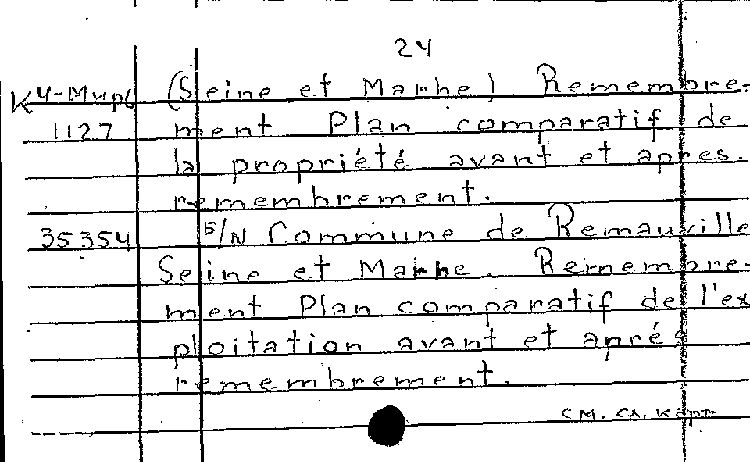 24
(Seine et Marne) Remembre-
1127 ment Plan comparatif de
la propriété avant et apres.
remembrement.
35354 B/N Commune de Remauville
Seine et Marne. Remembre-
ment Plan comparatif de l'ex
ploitation avant et aprés
remembrement.